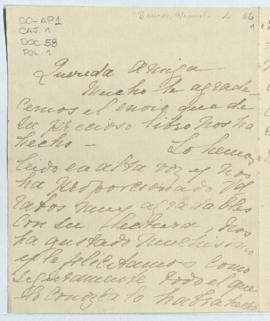 CO-AP1
CAJ. 1
DOC 58
FOL. 1
Querida amiga
Mucho le agrade-
cemos el envio que de
su precioso libro nos ha
hecho — Lo hemos
leido en alta voz y nos
ha proporcionado
ratos muy agradables
con su lectura. Nos
ha gustado muchísimo
y te felicitamos como
seguramente todo el que
lo conozca lo habrá hecho